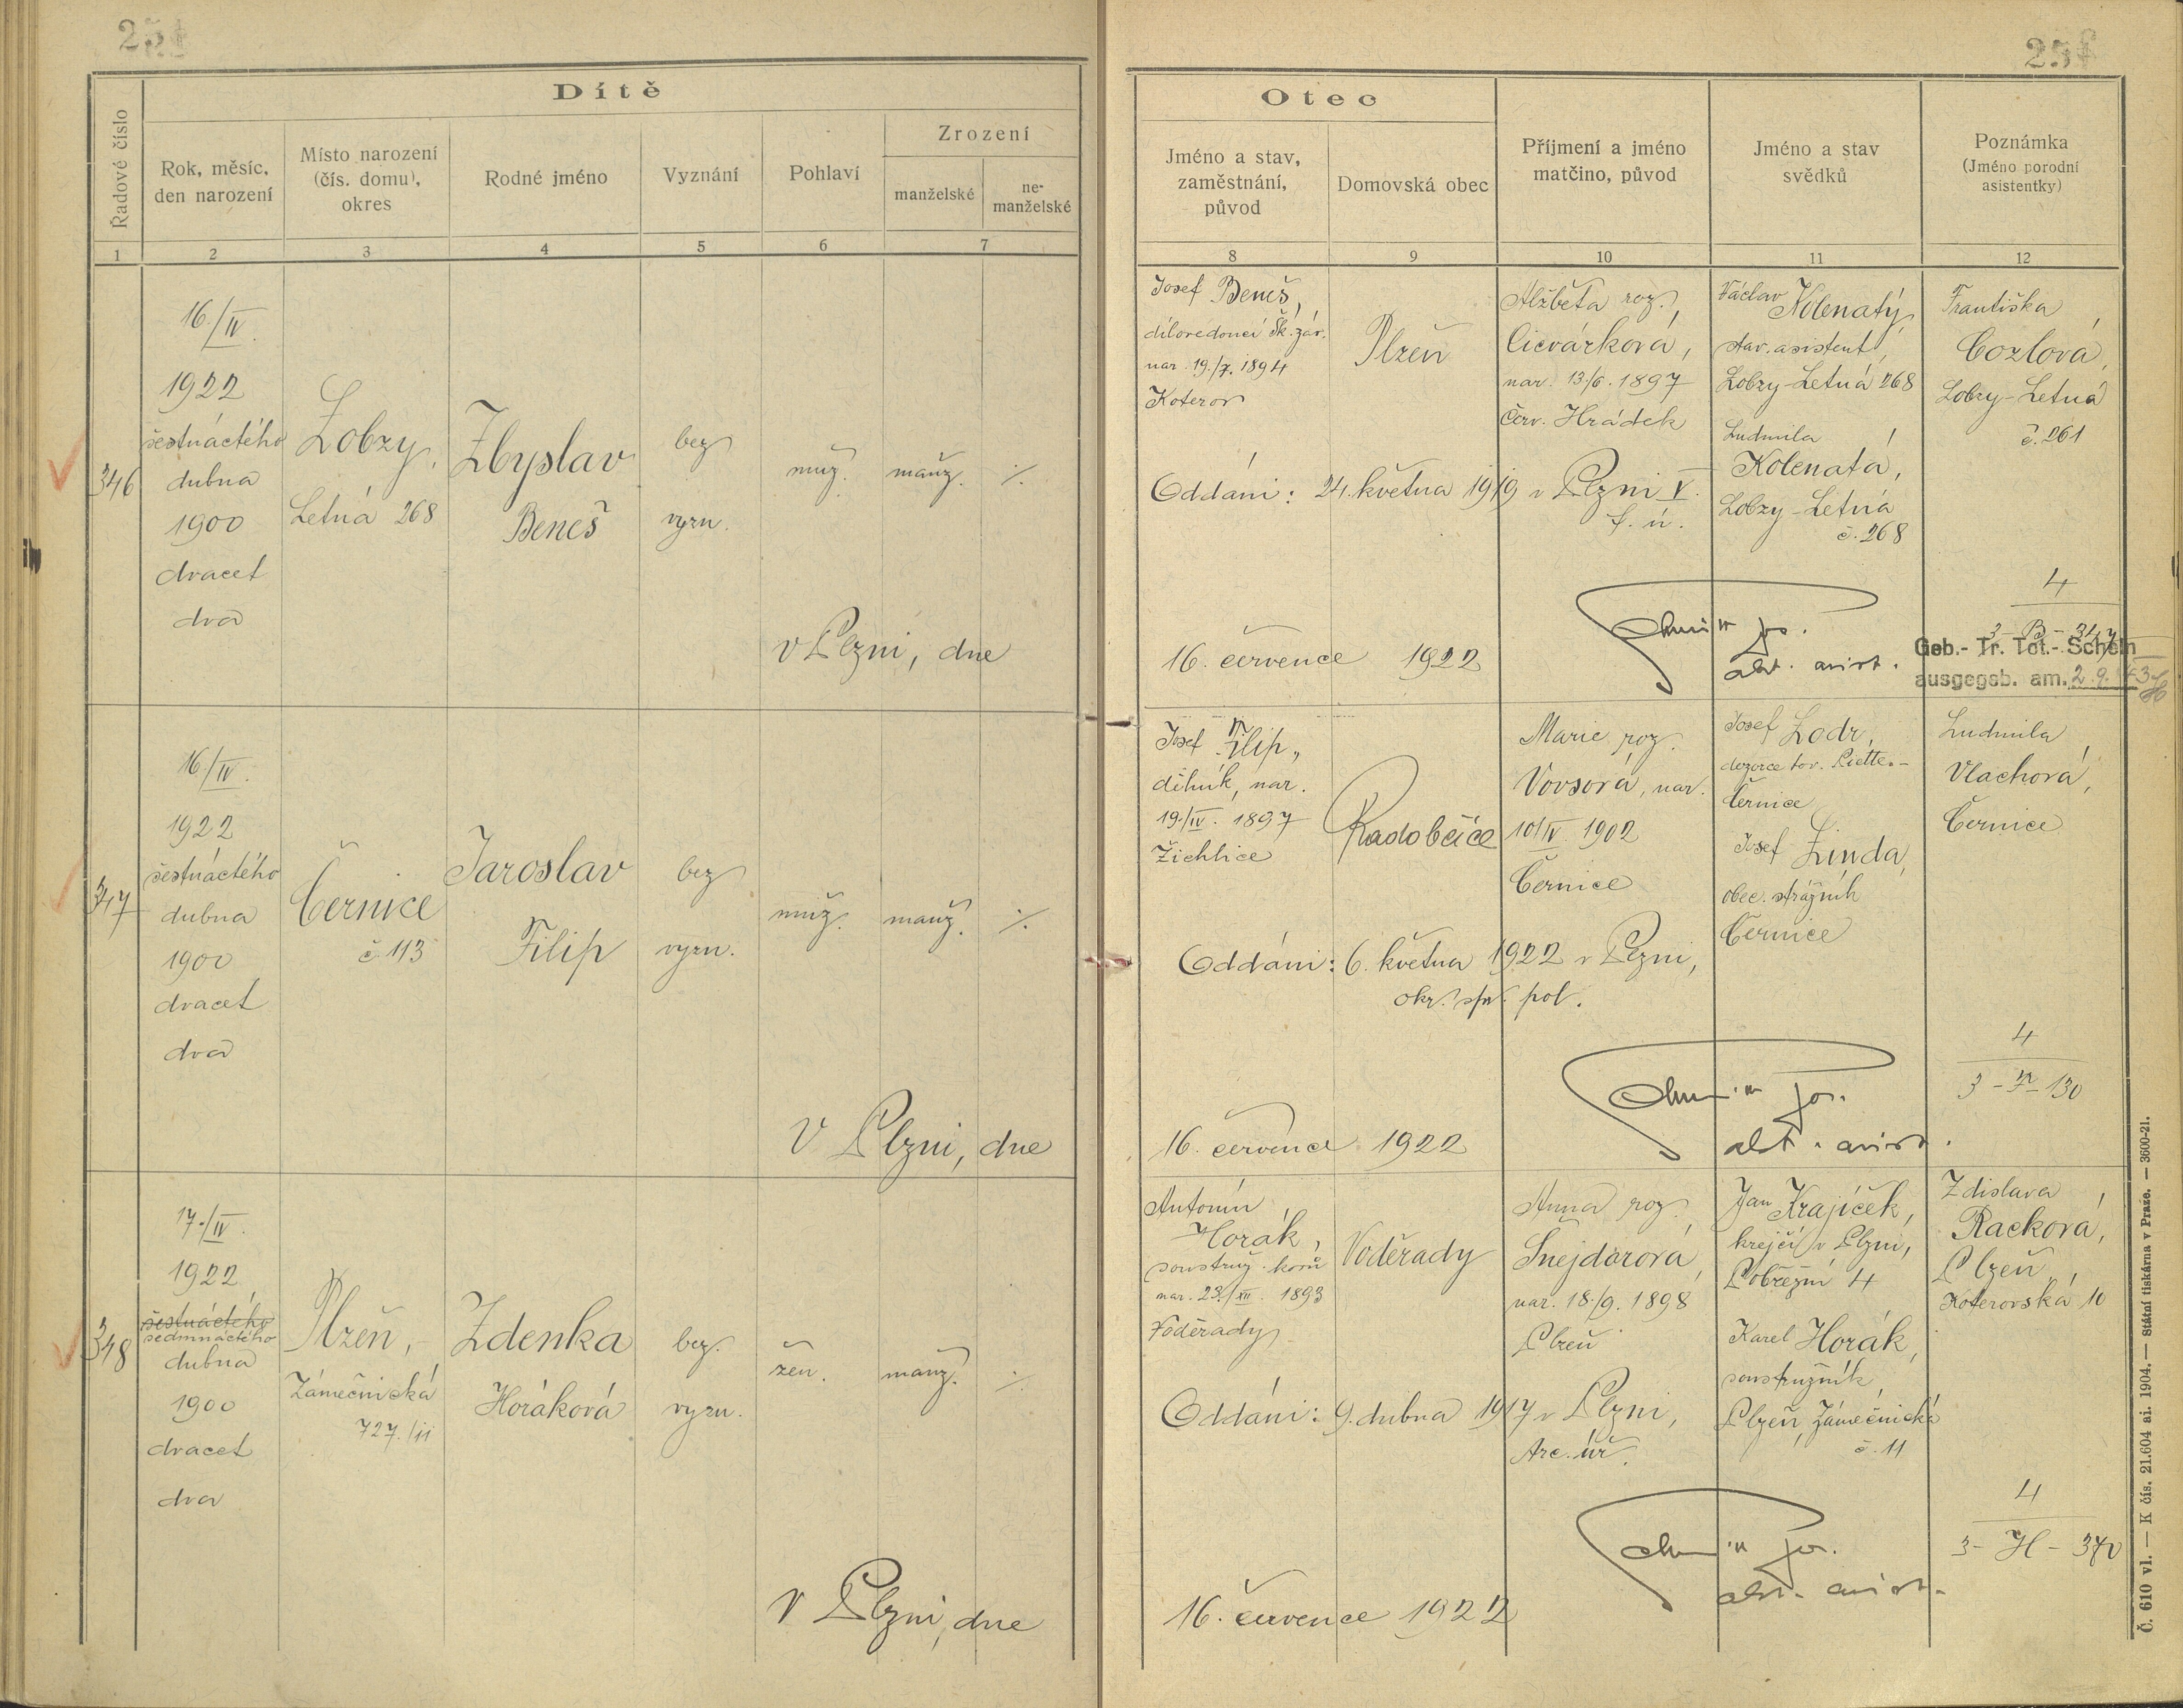 251
Dítě
Řadové číslo
Rok, měsíc,
den narození
Místo narození
(čís. domu),
okres
Rodné jméno
Vyznání
Pohlaví
Zrození
manželské
ne-
manželské
1
2
3
4
5
6
7
346
16./IV.
1922
šestnáctého
dubna
1900
dvacet
dva
Lobzy,
Letná 268
Zbyslav
Beneš
bez
vyzn.
muž.
manž.
v Plzni, dne
347
16./IV.
1922
šestnáctého
dubna
1900
dvacet
dva
Černice
č 113
Jaroslav
Filip
bez
vyzn.
muž.
manž.
V Plzni, dne
348
17./IV
1922
šestnáctého
sedmnáctého
dubna
1900
dvacet
dva
Plzeň,
Zámečnická
727./11
Zdenka
Horáková
bez.
vyzn.
žen.
manž.
V Plzni, dne
251
Otec
Jméno a stav,
zaměstnání,
původ
Domovská obec
Příjmení a jméno
matčino, původ
Jméno a stav
svědků
Poznámka
(Jméno porodní
asistentky)
8
9
10
11
12
Josef Beneš,
dílovedoucí Šk. záv.
nar. 19./7. 1894
Koterov
Plzeň
Alžběta roz.
Cicvárková,
nar. 13/6. 1897
Červ. Hrádek
Václav Kolenatý,
stav. asistent,
Lobzy-Letná 268
Ludmila
Kolenatá,
Lobzy-Letná
č. 268
Františka
Cozlová,
Lobzy-Letná
č. 261
Oddáni: 24. května 1919 v Plzni V.
f. ú.
16. července 1922
4
3 - B - 347
Geb.- Tr. Tot.- Schein
ausgegeb. am. 2.9.43
Josef Filip,
dělník, nar.
19./IV. 1897
Žichlice
Radobčice
Marie roz.
Vovsová, nar.
10/IV. 1902
Černice
Josef Lodr,
dozorce tov. Piette.-
Černice
Josef Linda,
obec. strážník
Černice
Ludmila
Vlachová,
Černice
Oddáni: 6. května 1922 v Plzni,
okr. spr. pol.
16. července 1922
4
3 - F - 130
Antonín
Horák,
soustruž. kovů
nar. 23./XII. 1893
Voděrady
Voděrady
Anna roz.
Šnejdarová,
nar. 18./9. 1898
Plzeň
Jan Krajíček,
krejčí v Plzni,
Pobřežní 4
Karel Horák,
soustružník
Plzeň, Zámečnická
č. 11
Zdislava
Racková,
Plzeň,
Koterovská 10
Oddáni: 9. dubna 1917 v Plzni,
Arc. úř.
16. července 1922
4
3 - H - 370
Č. 610 vl. — K čís. 21.604 ai. 1904. — Státní tiskárna v Praze. — 3600-21.